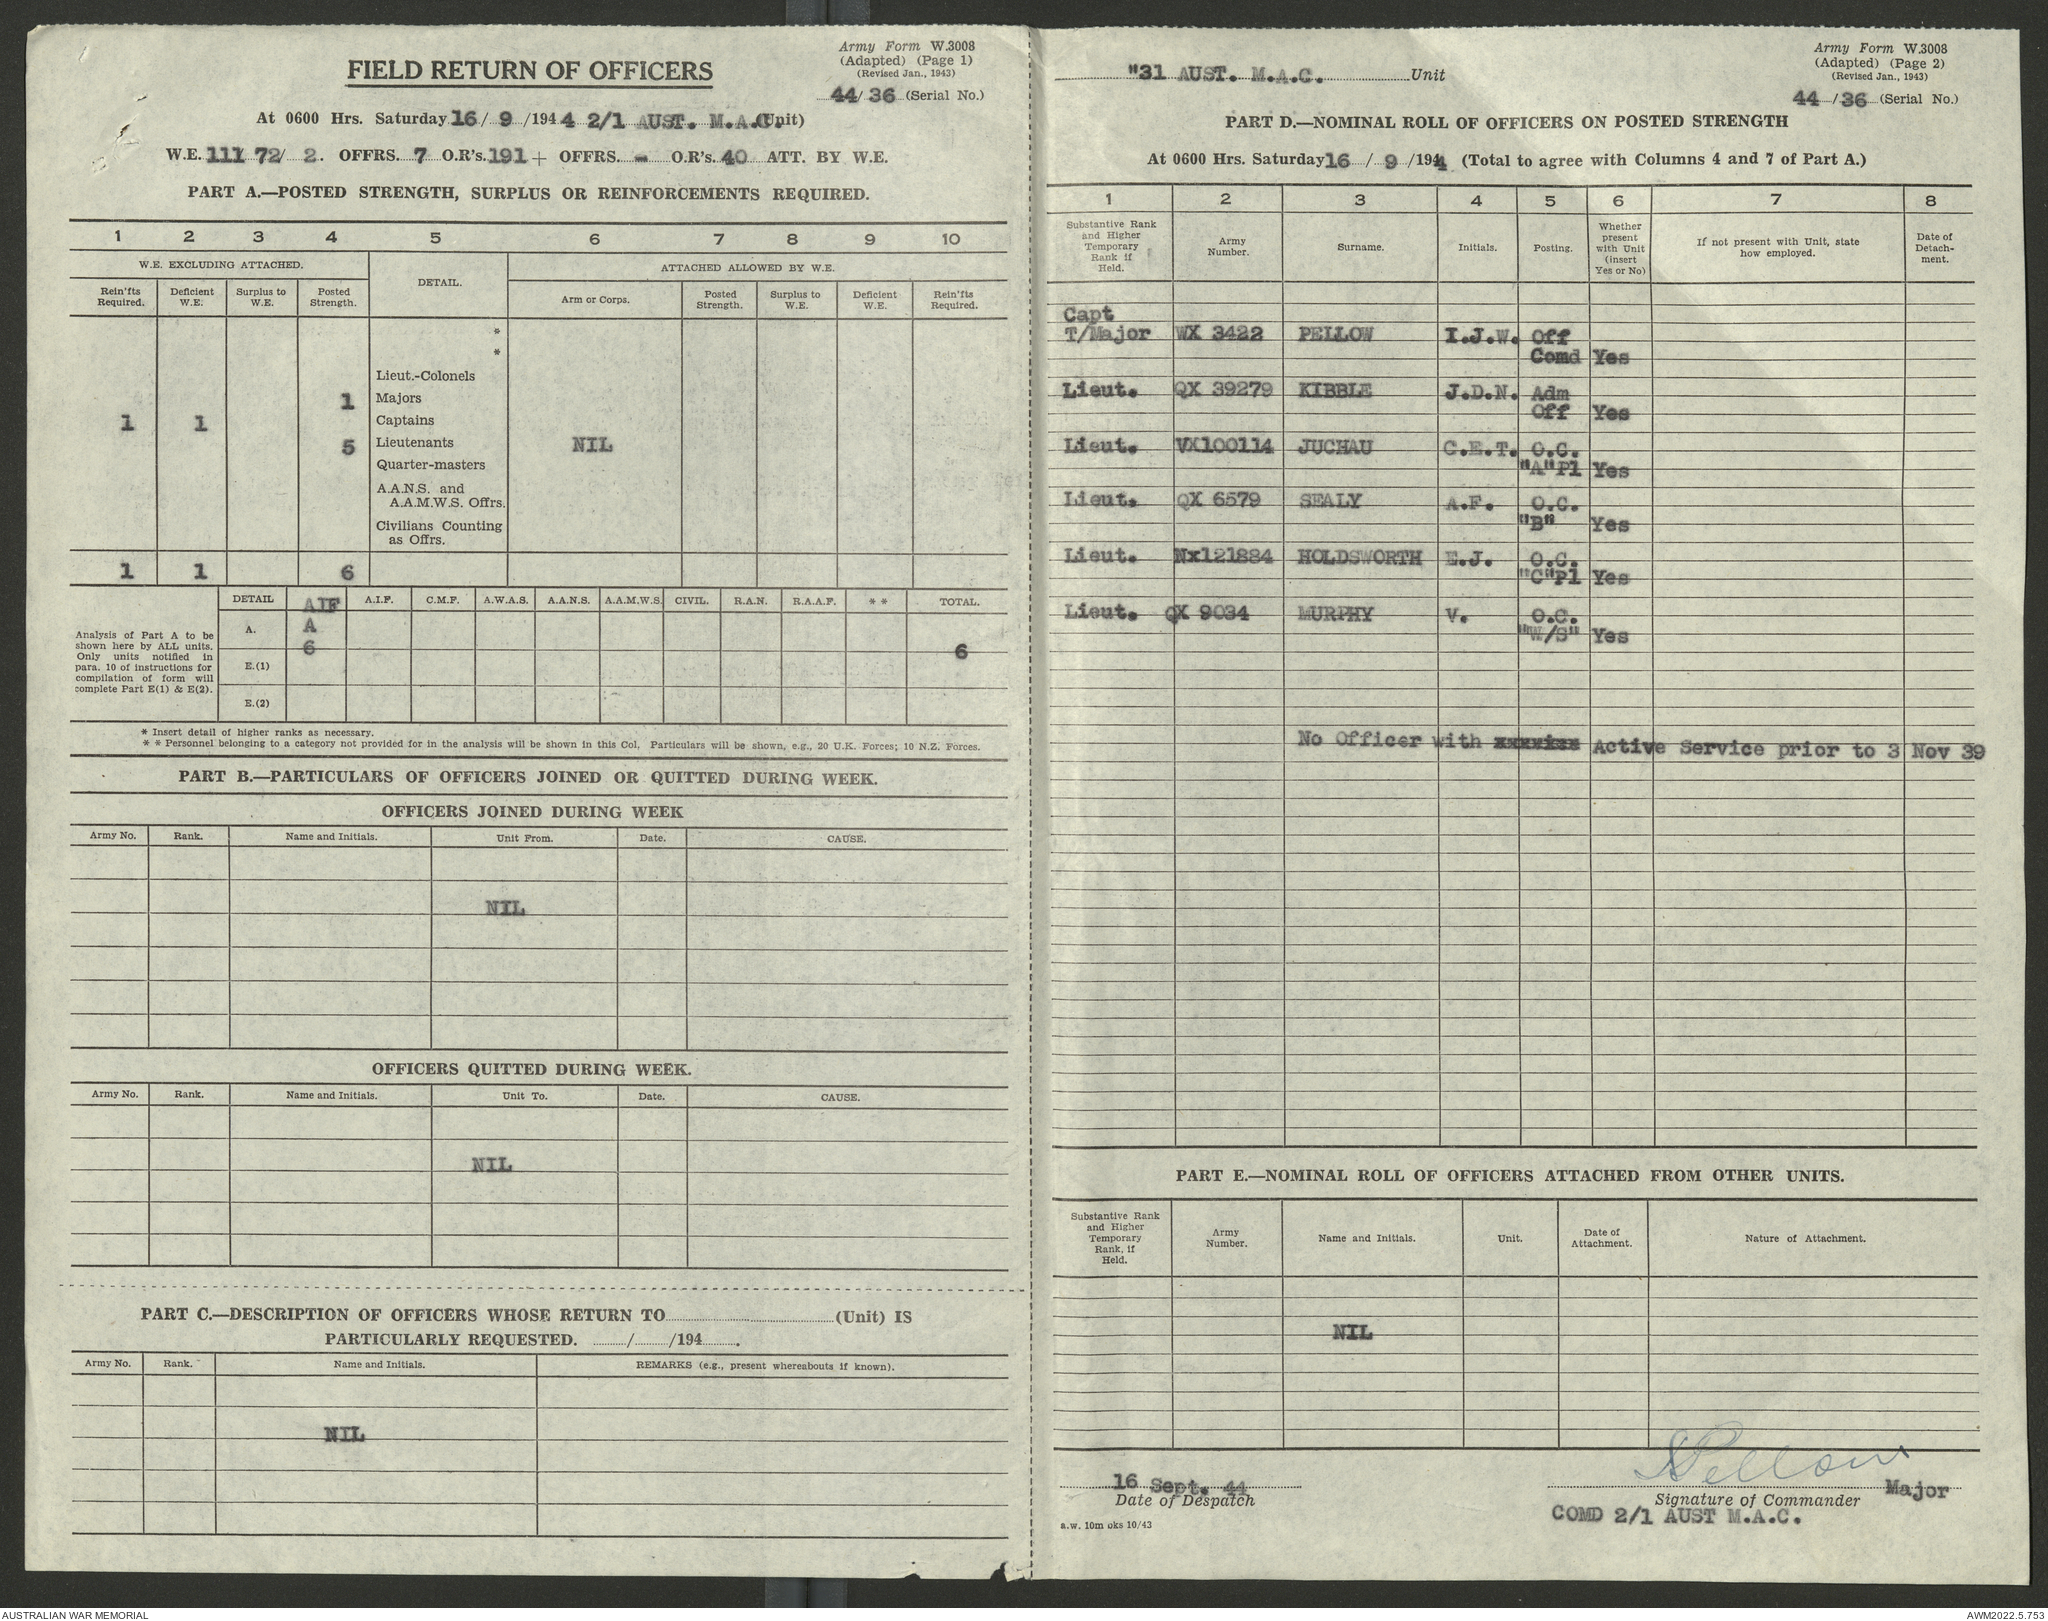 Army Form W.3008
(Adapted) (Page 1)
(Revised Jan., 1943)
44/36 (Serial No.)
FIELD RETURN OF OFFICERS
At 0600 Hrs. Saturday 16/9/1944 2/1 AUST. M.A.C. (Unit)
W.E. 111 72/ 2. OFFRS. 7 O.R's. 191 + OFFRS. - O.R's. 40 ATT. BY W.E.
PART A.—POSTED STRENGTH, SURPLUS OR REINFORCEMENTS REQUIRED.
1 2 3 4 5 6 7 8 9 10
W.E. EXCLUDING ATTACHED. DETAIL. ATTACHED ALLOWED BY W.E.
Rein'fts Required. Deficient W.E. Surplus to W.E. Posted Strength. Arm or Corps. Posted Strength. Surplus to W.E. Deficient W.E. Rein'fts Required.
*
*
Lieut.-Colonels
1 Majors
1 1 Captains
5 Lieutenants NIL
Quarter-masters
A.A.N.S. and
A.A.M.W.S. Offrs.
Civilians Counting
as Offrs.
1 1 6
DETAIL AIF A.I.F. C.M.F. A.W.A.S. A.A.N.S. A.A.M.W.S. CIVIL. R.A.N. R.A.A.F. * * TOTAL.
A. A
6 6
E.(1)
E.(2)
Analysis of Part A to be
shown here by ALL units.
Only units notified in
para. 10 of instructions for
compilation of form will
complete Part E(1) & E(2).
* Insert detail of higher ranks as necessary.
* * Personnel belonging to a category not provided for in the analysis will be shown in this Col. Particulars will be shown, e.g., 20 U.K. Forces; 10 N.Z. Forces.
PART B.—PARTICULARS OF OFFICERS JOINED OR QUITTED DURING WEEK.
OFFICERS JOINED DURING WEEK
Army No. Rank. Name and Initials. Unit From. Date. CAUSE.
NIL
OFFICERS QUITTED DURING WEEK.
Army No. Rank. Name and Initials. Unit To. Date. CAUSE.
NIL
PART C.—DESCRIPTION OF OFFICERS WHOSE RETURN TO (Unit) IS
PARTICULARLY REQUESTED. / /194 .
Army No. Rank. Name and Initials. REMARKS (e.g., present whereabouts if known).
NIL
Army Form W.3008
(Adapted) (Page 2)
(Revised Jan., 1943)
44/36 (Serial No.)
"31 AUST. M.A.C. Unit
PART D.—NOMINAL ROLL OF OFFICERS ON POSTED STRENGTH
At 0600 Hrs. Saturday 16/9/1944 (Total to agree with Columns 4 and 7 of Part A.)
1 2 3 4 5 6 7 8
Substantive Rank and Higher Temporary Rank if Held. Army Number. Surname. Initials. Posting. Whether present with Unit (insert Yes or No) If not present with Unit, state how employed. Date of Detachment.
Capt
T/Major WX 3422 PELLOW I.J.W. Off
Comd Yes
Lieut. QX 39279 KIBBLE J.D.N. Adm
Off Yes
Lieut. VX100114 JUCHAU C.E.T. O.C.
"A"Pl Yes
Lieut. QX 6579 SEALY A.F. O.C.
"B" Yes
Lieut. Nx121884 HOLDSWORTH E.J. O.C.
"C"Pl Yes
Lieut. QX 9034 MURPHY V. O.C.
"W/S" Yes
No Officer with Active Service prior to 3 Nov 39
PART E.—NOMINAL ROLL OF OFFICERS ATTACHED FROM OTHER UNITS.
Substantive Rank and Higher Temporary Rank, if Held. Army Number. Name and Initials. Unit. Date of Attachment. Nature of Attachment.
NIL
16 Sept. 44
Date of Despatch
Pellow Major
Signature of Commander
COMD 2/1 AUST M.A.C.
a.w. 10m bks 10/43
AUSTRALIAN WAR MEMORIAL
AWM2022.5.753